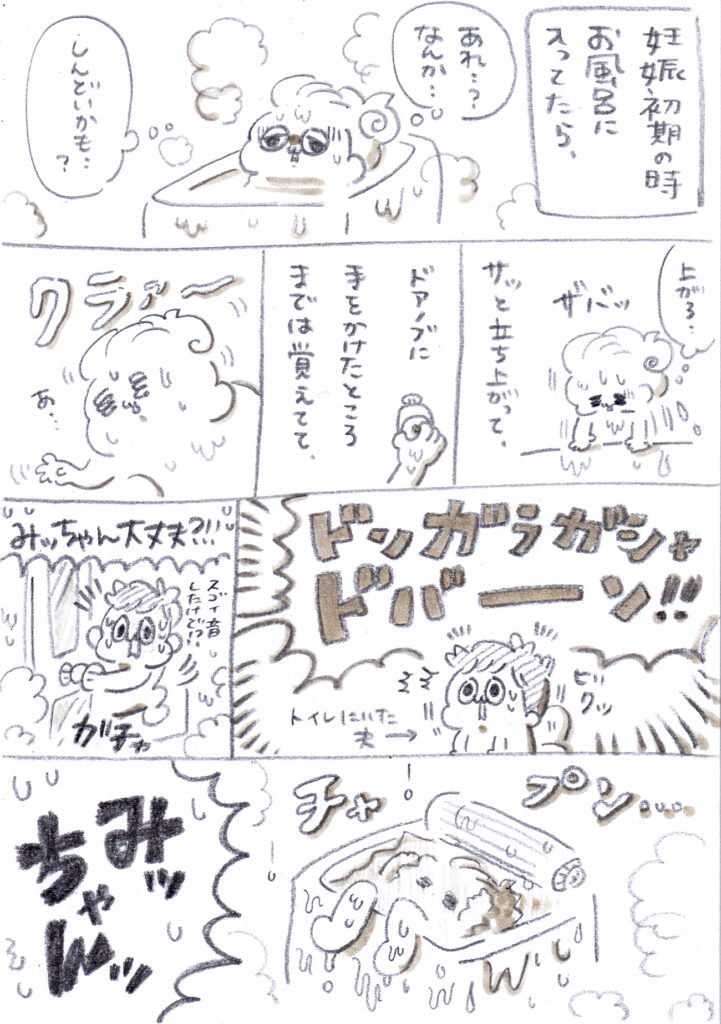 妊娠初期の時
お風呂に
入ってたら、
あれ…?
なんか…
しんどいかも…
?
上がろ…
ザバッ
サッと立ち上がって、
ドアノブに
手をかけたところ
までは覚えてて、
クラァー
あ…
ドンガラガシャ
ドバーーン!!
ビクッ
トイレにいた
夫→
みッちゃん大丈夫?!!
スゴイ音
したけど!?
ガチャ
チャプン…
みッ
ちゃんッ